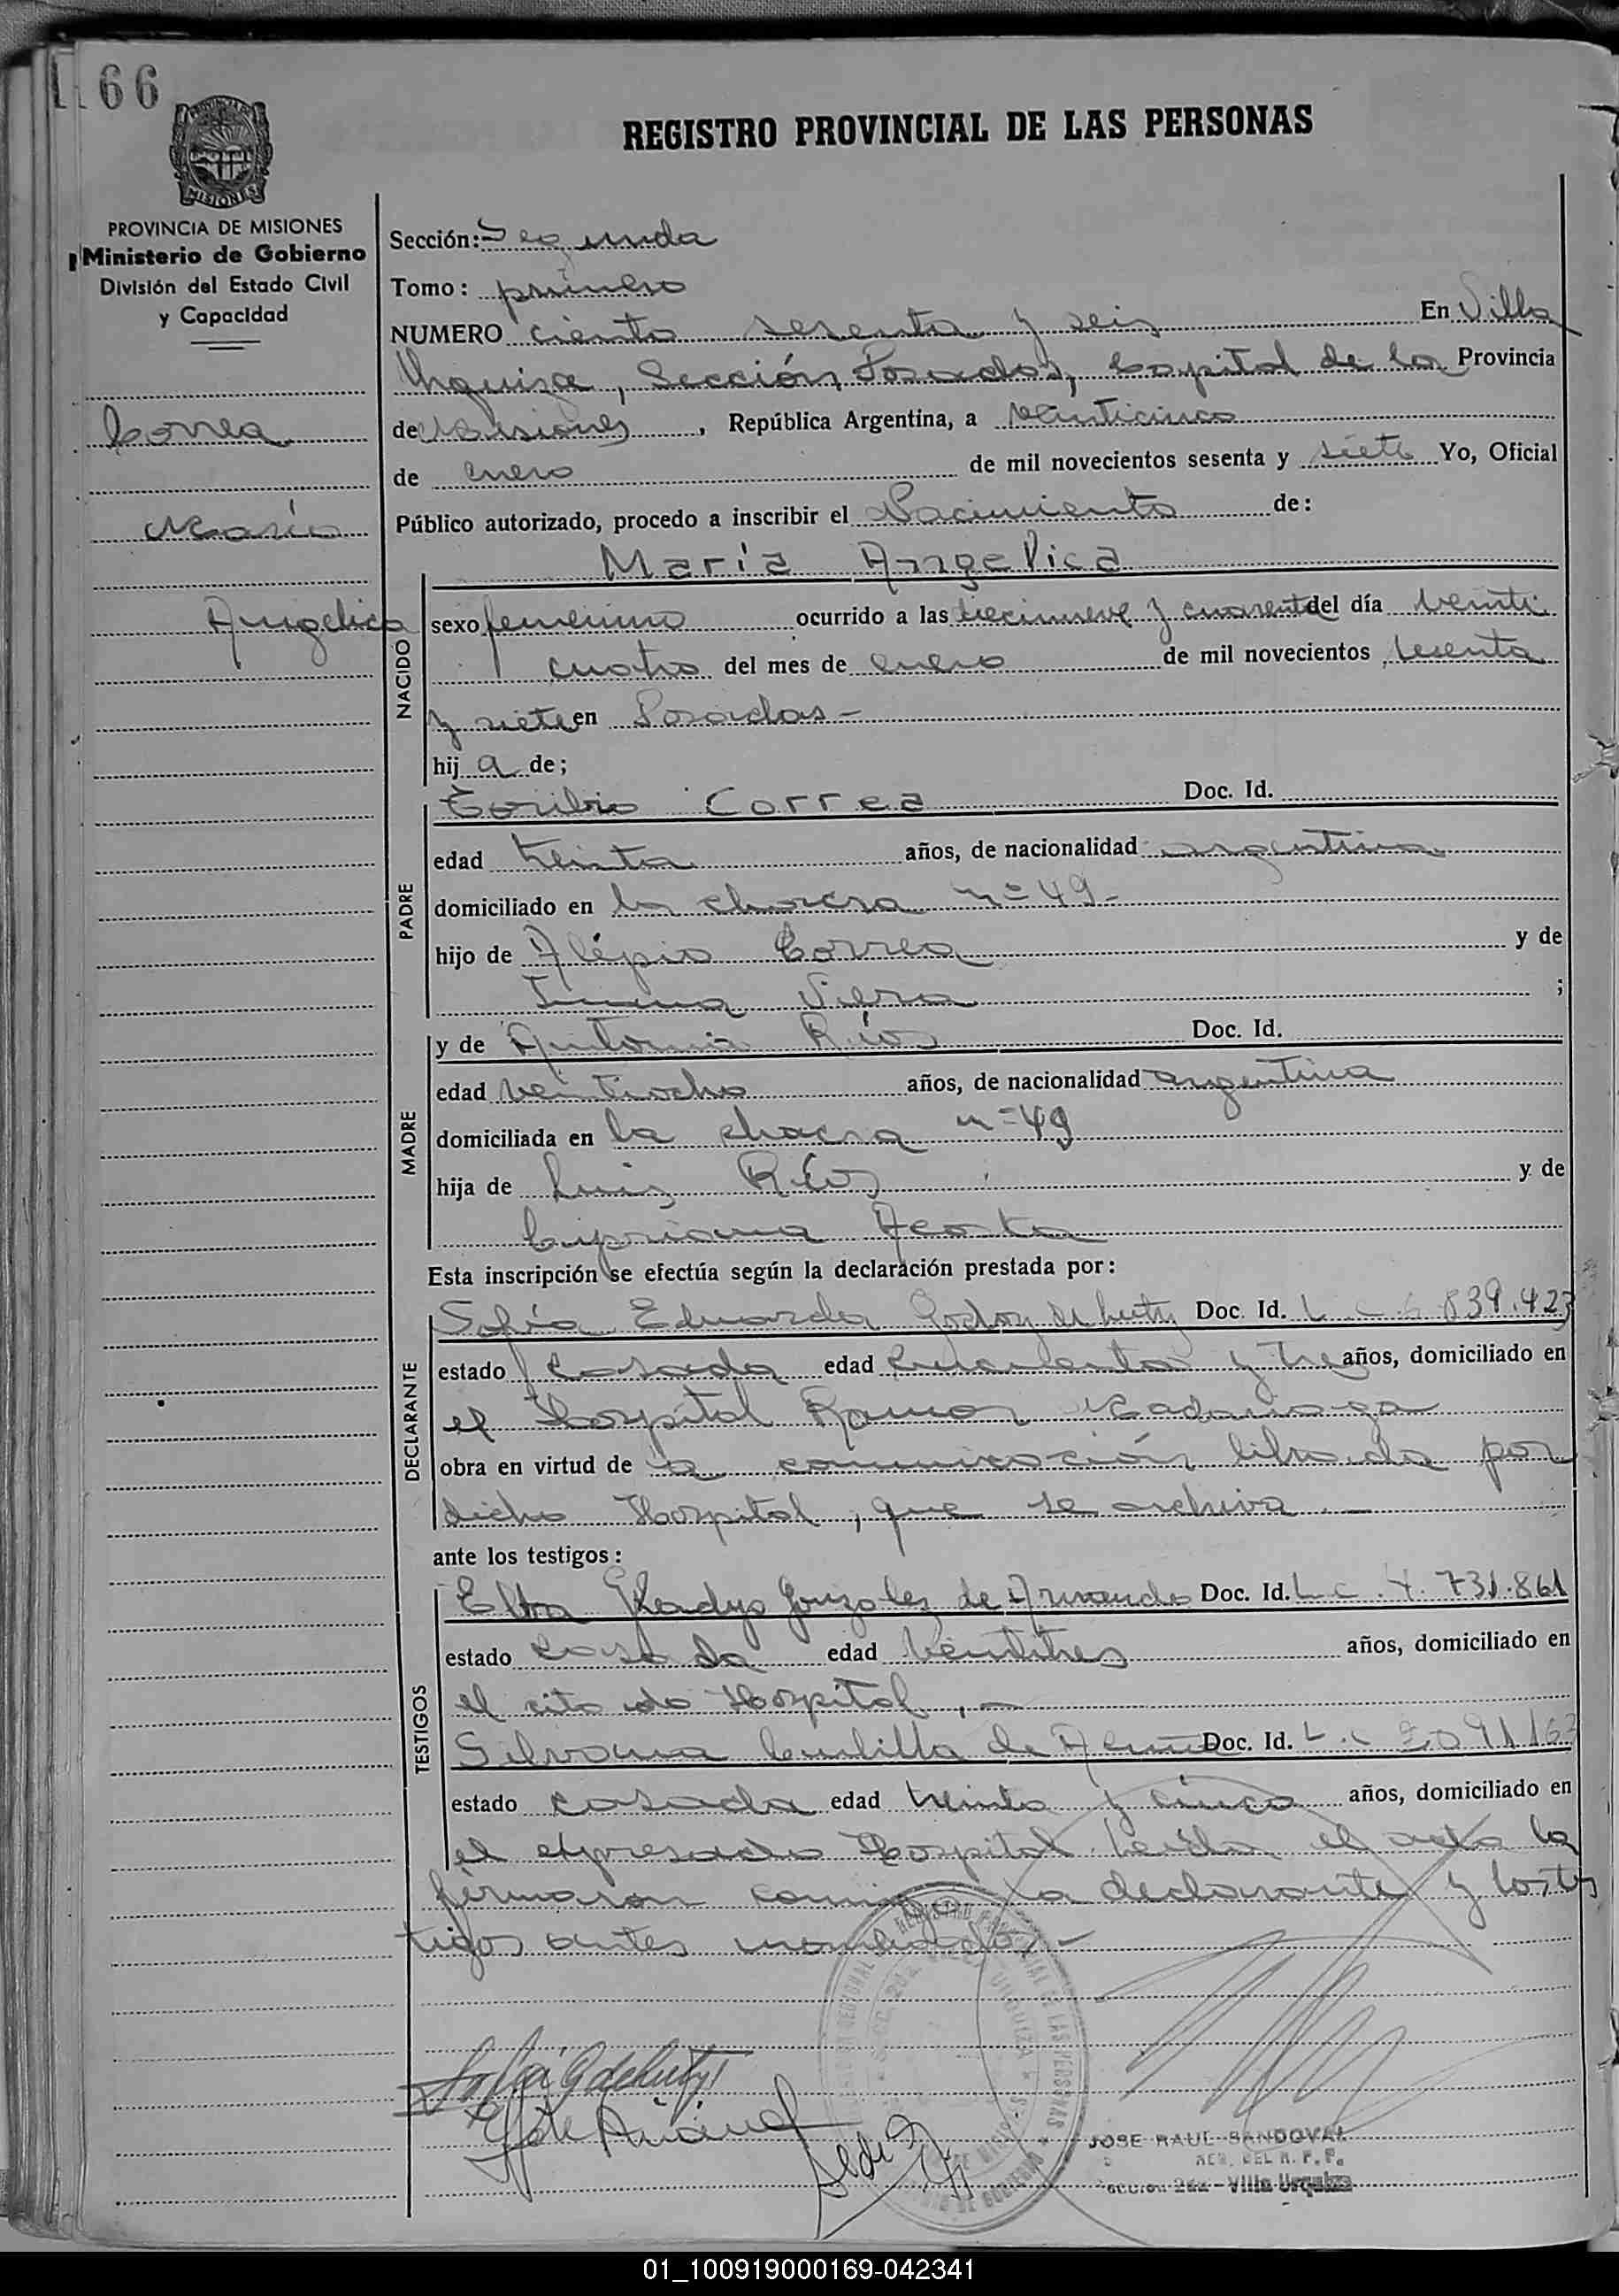 166
REGISTRO PROVINCIAL DE LAS PERSONAS
MISIONES
PROVINCIA DE MISIONES
Ministerio de Gobierno
División del Estado Civil
y Capacidad
Correa
María
Angelica
Sección: Segunda
Tomo: primero
NUMERO ciento sesenta y seis En Villa
Urquiza, Sección Posadas, Capital de la Provincia
de Misiones, República Argentina, a veinticinco
de enero de mil novecientos sesenta y siete Yo, Oficial
Público autorizado, procedo a inscribir el Nacimiento de:
María Angelica
NACIDO
sexo femenino ocurrido a las diecinueve y cuarenta del día veinti
cuatro del mes de enero de mil novecientos sesenta
y siete en Posadas -
hij a de;
PADRE
Toribio Correa Doc. Id.
edad treinta años, de nacionalidad argentina
domiciliado en la chacra nº 49-
hijo de Alépio Correa y de
Viera ;
MADRE
y de Antonia Ríos Doc. Id.
edad veintiocho años, de nacionalidad argentina
domiciliada en la chacra nº 49
hija de Luis Ríos y de
Cipriana Acosta
Esta inscripción se efectúa según la declaración prestada por:
DECLARANTE
Sofía Eduarda Godoy de Doc. Id. L C 6.839.423
estado casada edad cuarenta y tres años, domiciliado en
el Hospital Ramon Madariaga
obra en virtud de la comunicación librada por
dicho Hospital, que se archiva. -
ante los testigos:
TESTIGOS
Elba Gladys Gonzalez de Doc. Id. L C. 4. 731.861
estado casada edad veintitres años, domiciliado en
el citado Hospital, -
Silvana de Doc. Id. L. C
estado casada edad treinta y cinco años, domiciliado en
el expresado Hospital. Leída el acta la
firmaron conmigo la declarante y los tes
tigos antes nombrados -
JOSE RAUL SANDOVAL
Villa Urquiza
01_100919000169-042341